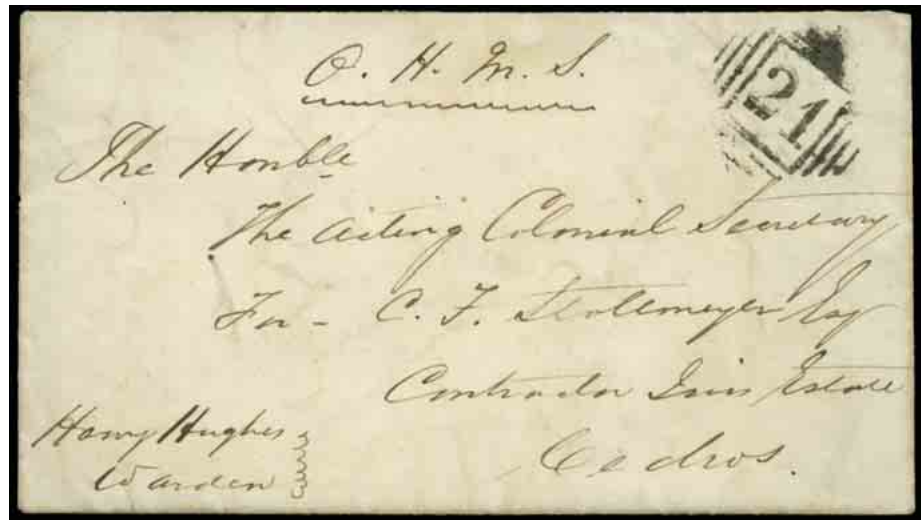 O. H. M. S.
21
The Honble
The Acting Colonial Secretary
For - C. F. Stollmeyer Esq
Estate
Cedros.
Harry Hughes
Warden